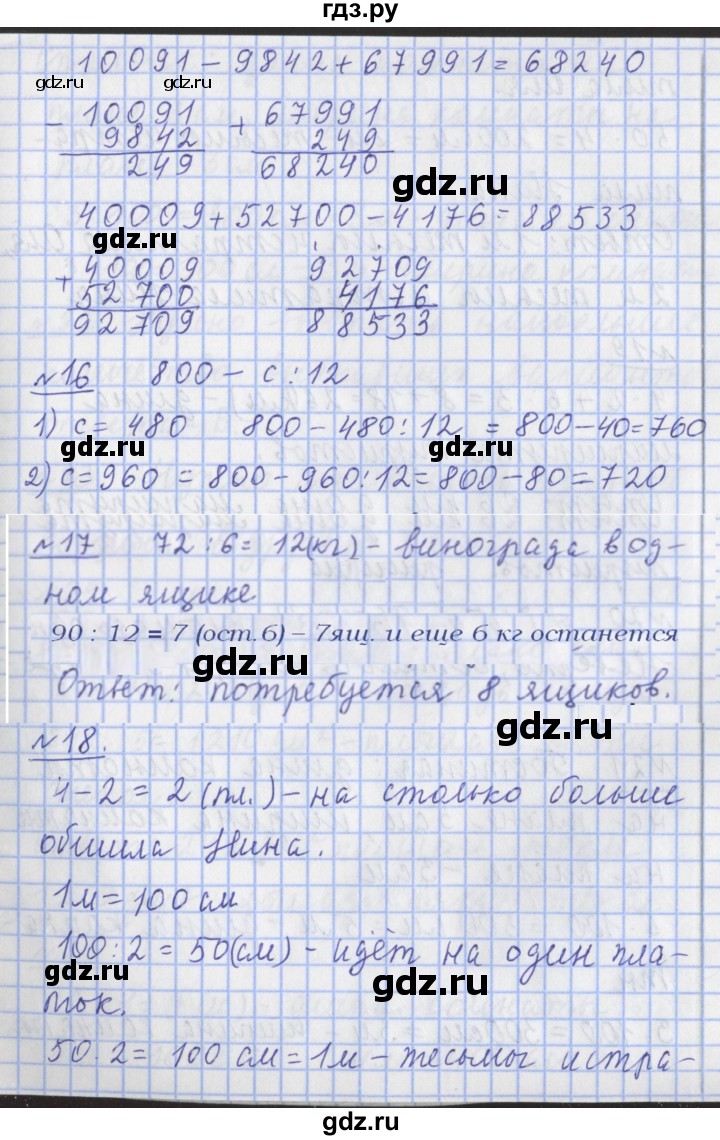 гдз.ру
10091 - 9842 + 67991 = 68240
gdz.ru gdz.ru
- 10091 + 67991
9842 249
249 68240
gdz.ru
40009 + 52700 - 4176 = 88533
gdz.ru
+ 40009 92709
52700 4176
92709 88533
gdz.ru
№16 800 - с : 12
1) с = 480 800 - 480 : 12 = 800 - 40 = 760
gdz.ru gdz.ru
2) с = 960 = 800 - 960 : 12 = 800 - 80 = 720
№17 72 : 6 = 12 (кг) - винограда в од-
gdz.ru
ном ящике
90 : 12 = 7 (ост.6) – 7ящ. и еще 6 кг останется
gdz.ru
Ответ: потребуется 8 ящиков.
gdz.ru
№18.
4 - 2 = 2 (пл.) - на столько больше
обшила Нина.
gdz.ru
1м = 100 см
100 : 2 = 50 (см) - идёт на один пла-
gdz.ru gdz.ru
ток.
50 . 2 = 100 см = 1м - тесьмы истра-
gdz.ru